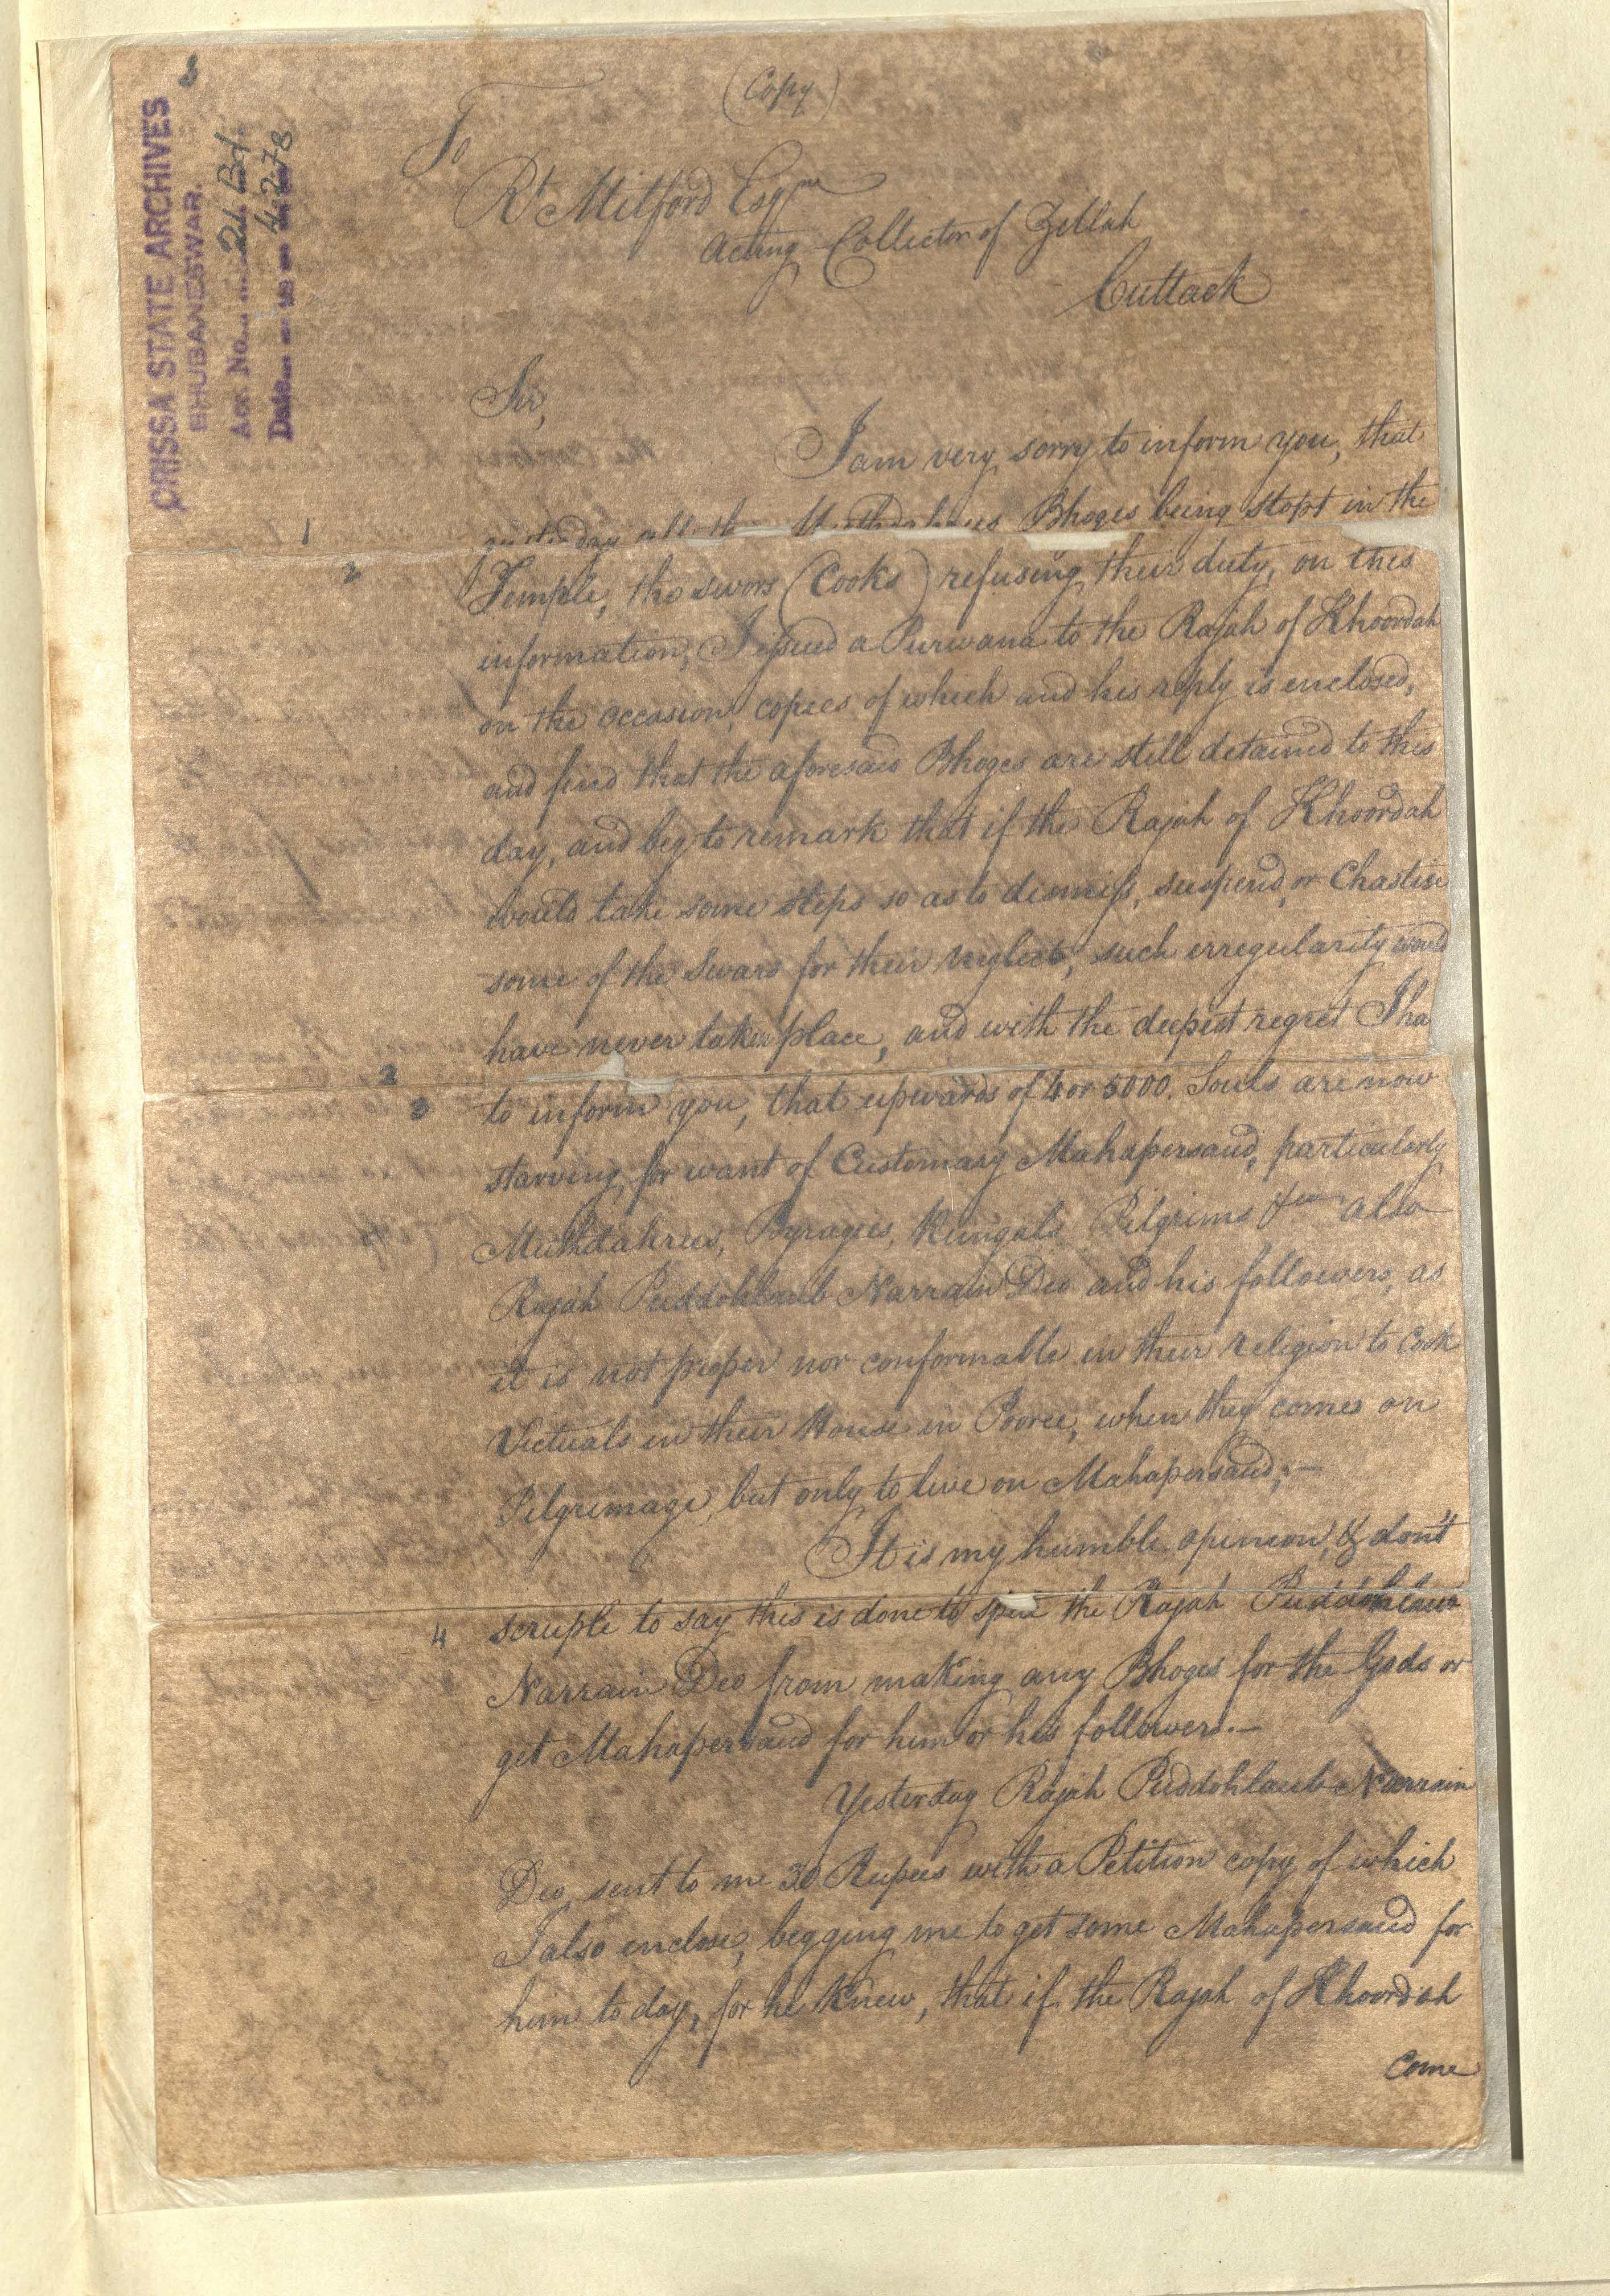 ORISSA STATE ARCHIVES
BHUBANESWAR.
Acc. No. 21 Bd.
Date 4.2.78
(Copy)
To
Rt Mitford Esqre
Acting Collector of Zillah
Cuttack
Sir,
I am very sorry to inform you, that
1
yesterday all the Bhoges being stopt in the
2
Temple, the swors (Cooks) refusing their duty, on this
information, I issued a Purwana to the Rajah of Khoordah
on the occasion, copies of which and his reply is enclosed,
and find that the aforesaid Bhoges are still detained to this
day, and beg to remark that if the Rajah of Khoordah
would take some steps so as to dismiss, suspend, or Chastise
some of the Swars for their neglect, such irregularity would
have never taken place, and with the deepest regret I ha
2
3 to inform you, that upwards of 4 or 5000. Souls are now
starving, for want of Customary Mahapersaud, particularly
Muthdahrees, Byragees, Kungals Pilgrims &ca also
Rajah Puddohlaub Narrain Deo and his followers, as
it is not proper nor conformable in their religion to Cook
Victuals in their House in Pooree, when they comes on
Pilgrimage, but only to live on Mahapersaud;—
It is my humble opinion, & don't
4 scruple to say this is done to the Rajah Puddohlaub
Narrain Deo from making any Bhoges for the Gods or
get Mahapersaud for him or his followers.—
Yesterday Rajah Puddohlaub Narrain
Deo, sent to me 30 Rupees with a Petition copy of which
I also enclose, begging me to get some Mahapersaud for
him to day, for he Knew, that if the Rajah of Khoordah
Come